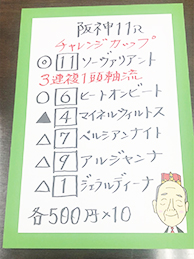 阪神11R
チャレンジカップ
◎ 11 ソーヴァリアント
3連複1頭軸流
○ 6 ヒートオンビート
▲ 4 マイネルウィルトス
△ 7 ペルシアンナイト
△ 9 アルジャンナ
△ 1 ジェラルディーナ
各500円×10